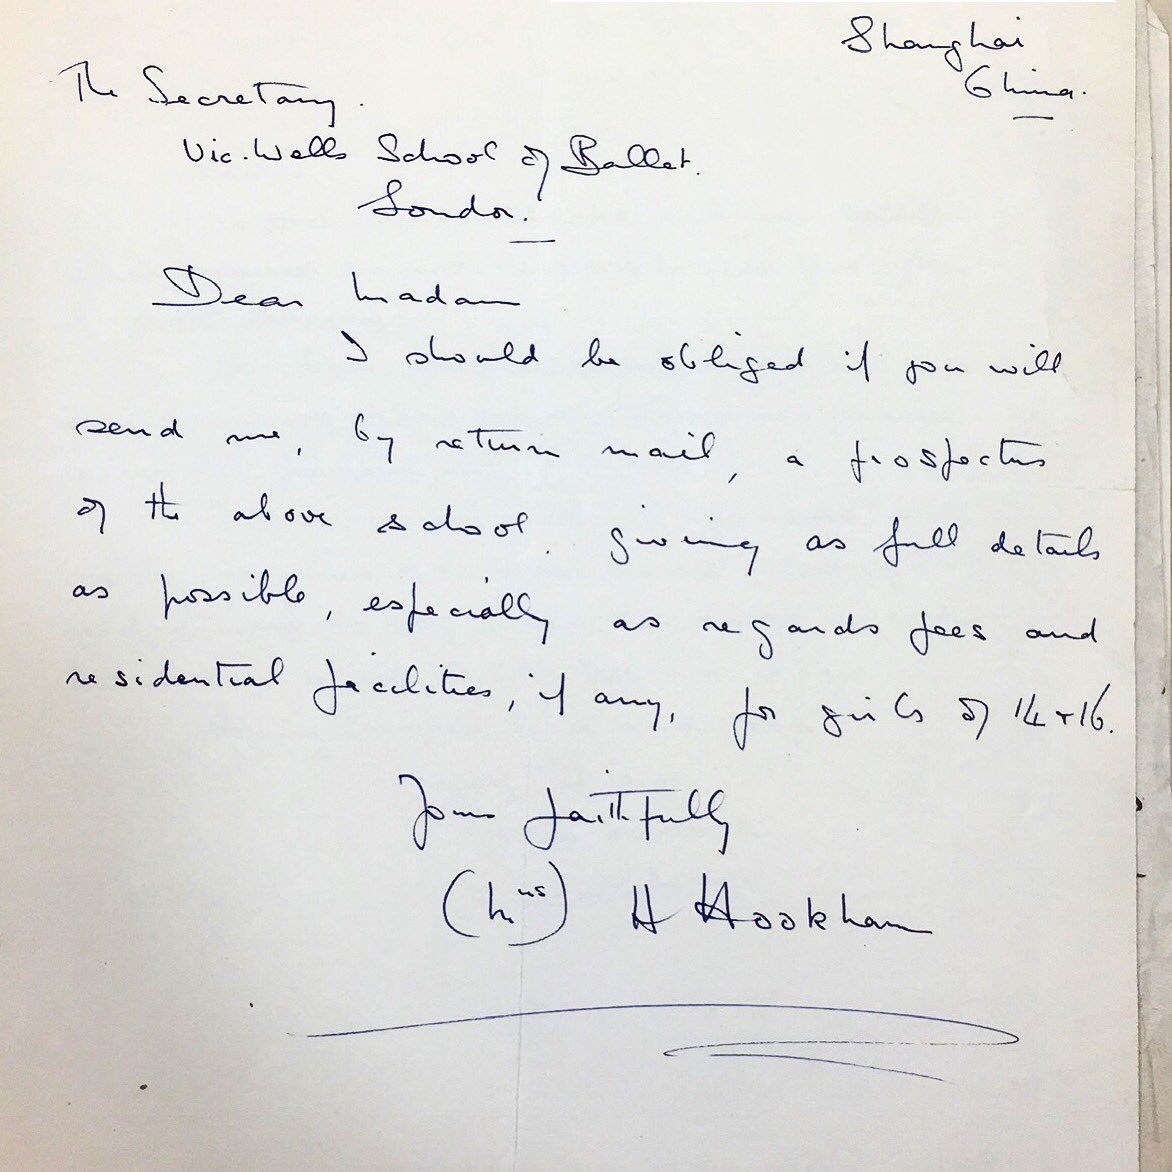 Shanghai
China.
The Secretary.
Vic. Wells School of Ballet.
London.
Dear Madam
I should be obliged if you will
send me, by return mail, a prospectus
of the above school, giving as full details
as possible, especially as regards fees and
residential facilities, if any, for girls of 14 + 16.
Yours faithfully
(Mrs) H Hookham